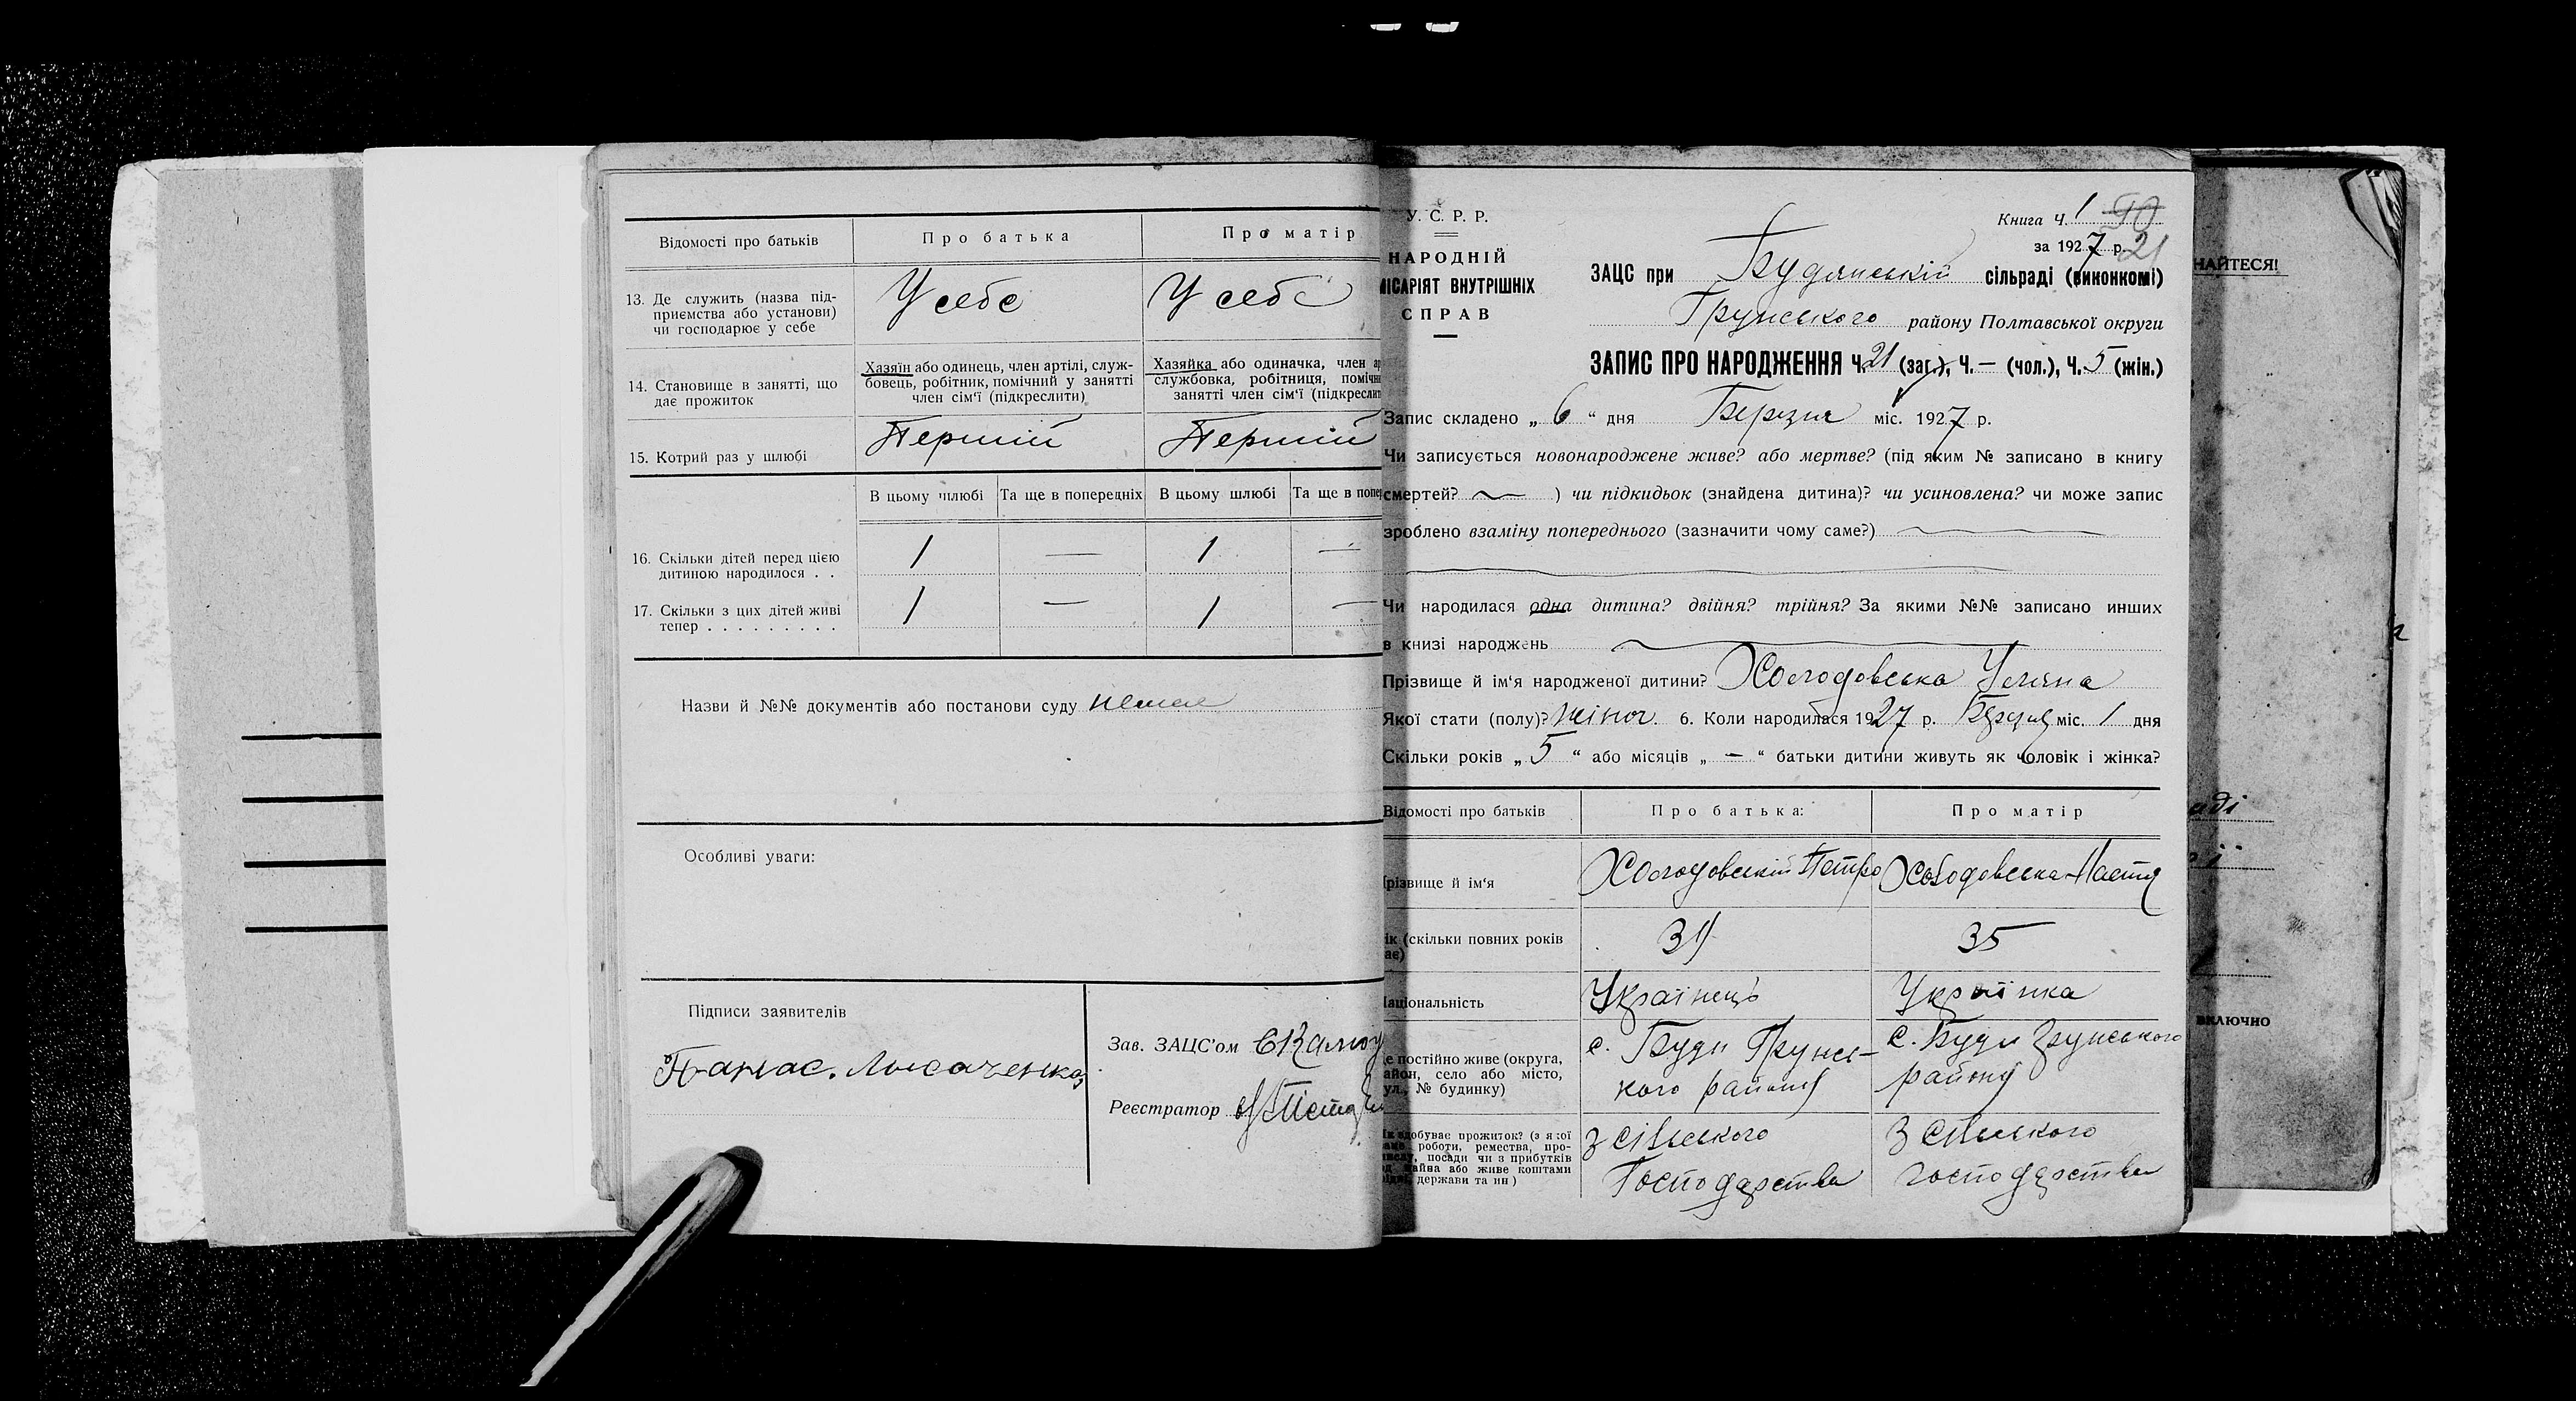 Відомості про батьків
Про батька
Про матір
13. Де служить (назва під-
приємства або установи)
чи господарює у себе
У себе
У себе
14. Становище в занятті, що
дає прожиток
Хазяїн або одинець, член артілі, служ-
бовець, робітник, помічний у занятті
член сім'ї (підкреслити)
Хазяйка або одиначка, член
службовка, робітниця,
занятті член сім'ї
15. Котрий раз у шлюбі
Первий
Первий
В цьому шлюбі
Та ще в попередніх
В цьому шлюбі
Та ще в
16. Скільки дітей перед цією
дитиною народилося . .
1
—
1
—
17. Скільки з цих дітей живі
тепер . . . . . . . . .
1
—
1
—
Назви й №№ документів або постанови суду немає
Особливі уваги:
Підписи заявителів
Панас.
Зав. ЗАЦС'ом
Реєстратор
У. С. Р. Р.
НАРОДНІЙ
ІСАРІЯТ ВНУТРІШНІХ
СПРАВ
Книга Ч. 1 50
за 1927 р. 21
ЗАЦС при Будянській сільраді (виконкомі)
Грунського району Полтавської округи
ЗАПИС ПРО НАРОДЖЕННЯ Ч. 21 (заг.), Ч. — (чол.), Ч. 5 (жін.)
Запис складено „ 6 “ дня Березня міс. 1927 р.
Чи записується новонароджене живе? або мертве? (під яким № записано в книгу
смертей? ) чи підкидьок (знайдена дитина)? чи усиновлена? чи може запис
зроблено взаміну попереднього (зазначити чому саме?)
Чи народилася одна дитина? двійня? трійня? За якими №№ записано инших
в книзі народжень
Прізвище й ім'я народженої дитини? Холодовська Уляна
Якої стати (полу)? жіноч. 6. Коли народилася 1927 р. Березня міс. 1 дня
Скільки років „ 5 “ або місяців „ — “ батьки дитини живуть як чоловік і жінка?
Відомості про батьків
Про батька:
Про матір
різвище й ім'я
Холодовський Петро
Холодовська Настя
ік (скільки повних років
ає)
35
аціональність
Українець
Українка
е постійно живе (округа,
айон, село або місто,
ул., № будинку)
с. Буди Грунсь-
кого району
с. Буди Грунського
району
добуває прожиток? (з якої
роботи, ремества, про-
посади чи з прибутків
майна або живе коштами
держави та ин)
з сільського
Господарства
З сільського
господарства
НАЙТЕСЯ!
аді
ї
включно